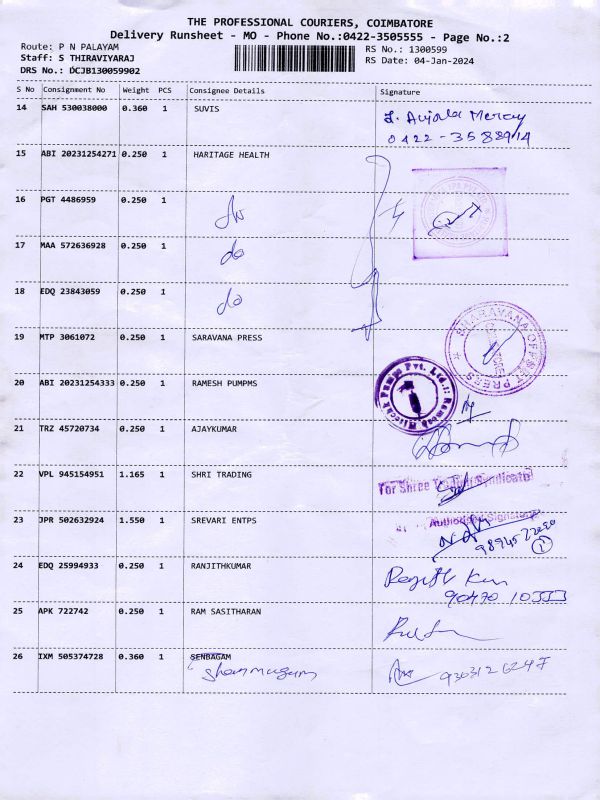 THE PROFESSIONAL COURIERS, COIMBATORE
Delivery Runsheet - MO - Phone No.:0422-3505555 - Page No.:2
Route: P N PALAYAM
RS No.: 1300599
Staff: S THIRAVIYARAJ
RS Date: 04-Jan-2024
DRS No.: DCJB130059902
S No Consignment No Weight PCS Consignee Details Signature
14 SAH 530038000 0.360 1 SUVIS
0422-3588914
15 ABI 20231254271 0.250 1 HARITAGE HEALTH
16 PGT 4486959 0.250 1
17 MAA 572636928 0.250 1 do
18 EDQ 23843059 0.250 1 do
19 MTP 3061072 0.250 1 SARAVANA PRESS
20 ABI 20231254333 0.250 1 RAMESH PUMPMS
21 TRZ 45720734 0.250 1 AJAYKUMAR
22 VPL 945154951 1.165 1 SHRI TRADING
For Shree Trading Syndicate
23 JPR 502632924 1.550 1 SREVARI ENTPS
Authorised Signatory
24 EDQ 25994933 0.250 1 RANJITHKUMAR
25 APK 722742 0.250 1 RAM SASITHARAN
26 IXM 505374728 0.360 1 SENBAGAM
Shanmugam